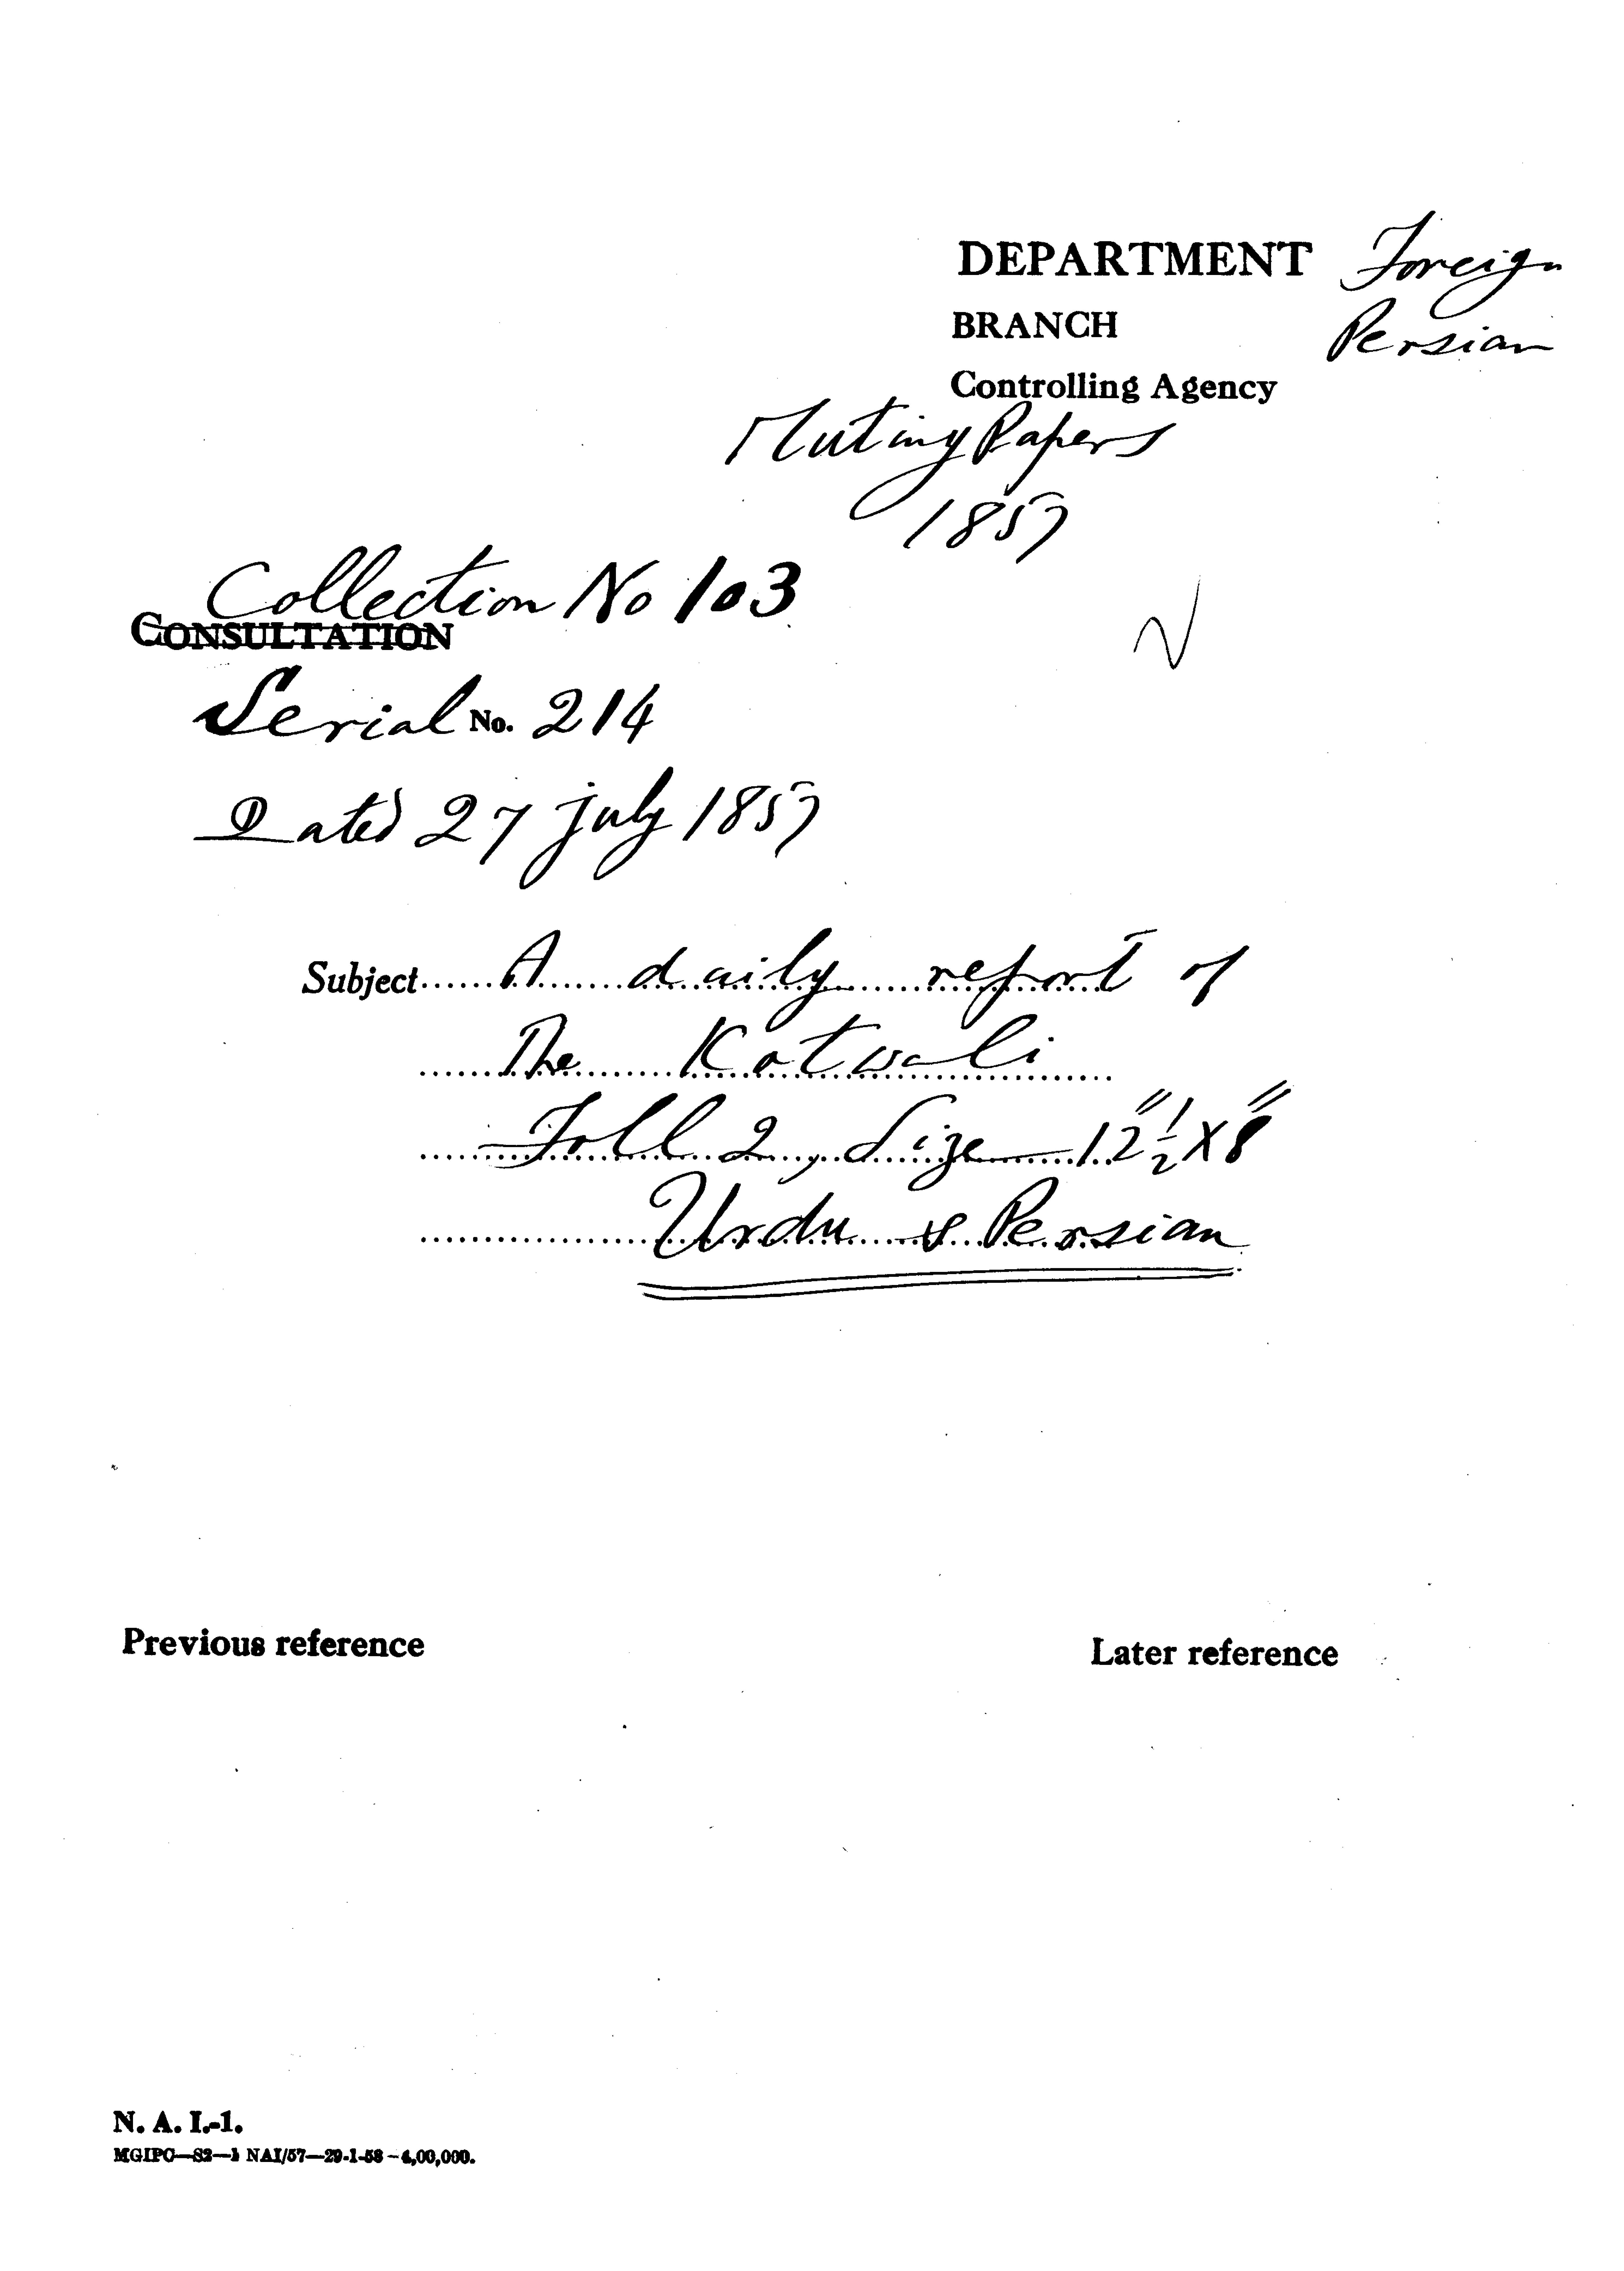 DEPARTMENT Foreign
BRANCH Persian
Controlling Agency
Mutiny Papers
1857
Collection No 103
CONSULTATION
Serial No. 214
Dated 27 July 1857
Subject...... A daily report of
The Kotwali
Foll 2, Size — 12"½ X 8"
Urdu & Persian
Previous reference
Later reference
N. A. I.-1.
MGIPC—S2—1 NAI/57—29-1-58—4,00,000.